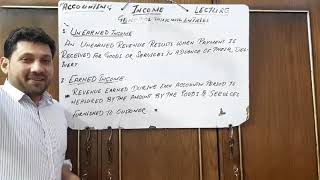 ACCOUNTING INCOME LECTURE
GENERAL JOURNAL ENTRIES
1. UNEARNED INCOME
AN UNEARNED REVENUE RESULTS WHEN PAYMENT IS
RECEIVED FOR GOODS OR SERVICES IN ADVANCE OF THEIR DEL-
IVERY
2. EARNED INCOME
REVENUE EARNED DURING EACH ACCOUNTING PERIOD IS
MEASURED BY THE AMOUNT BY THE GOODS & SERVICES
FURNISHED TO CUSTOMER